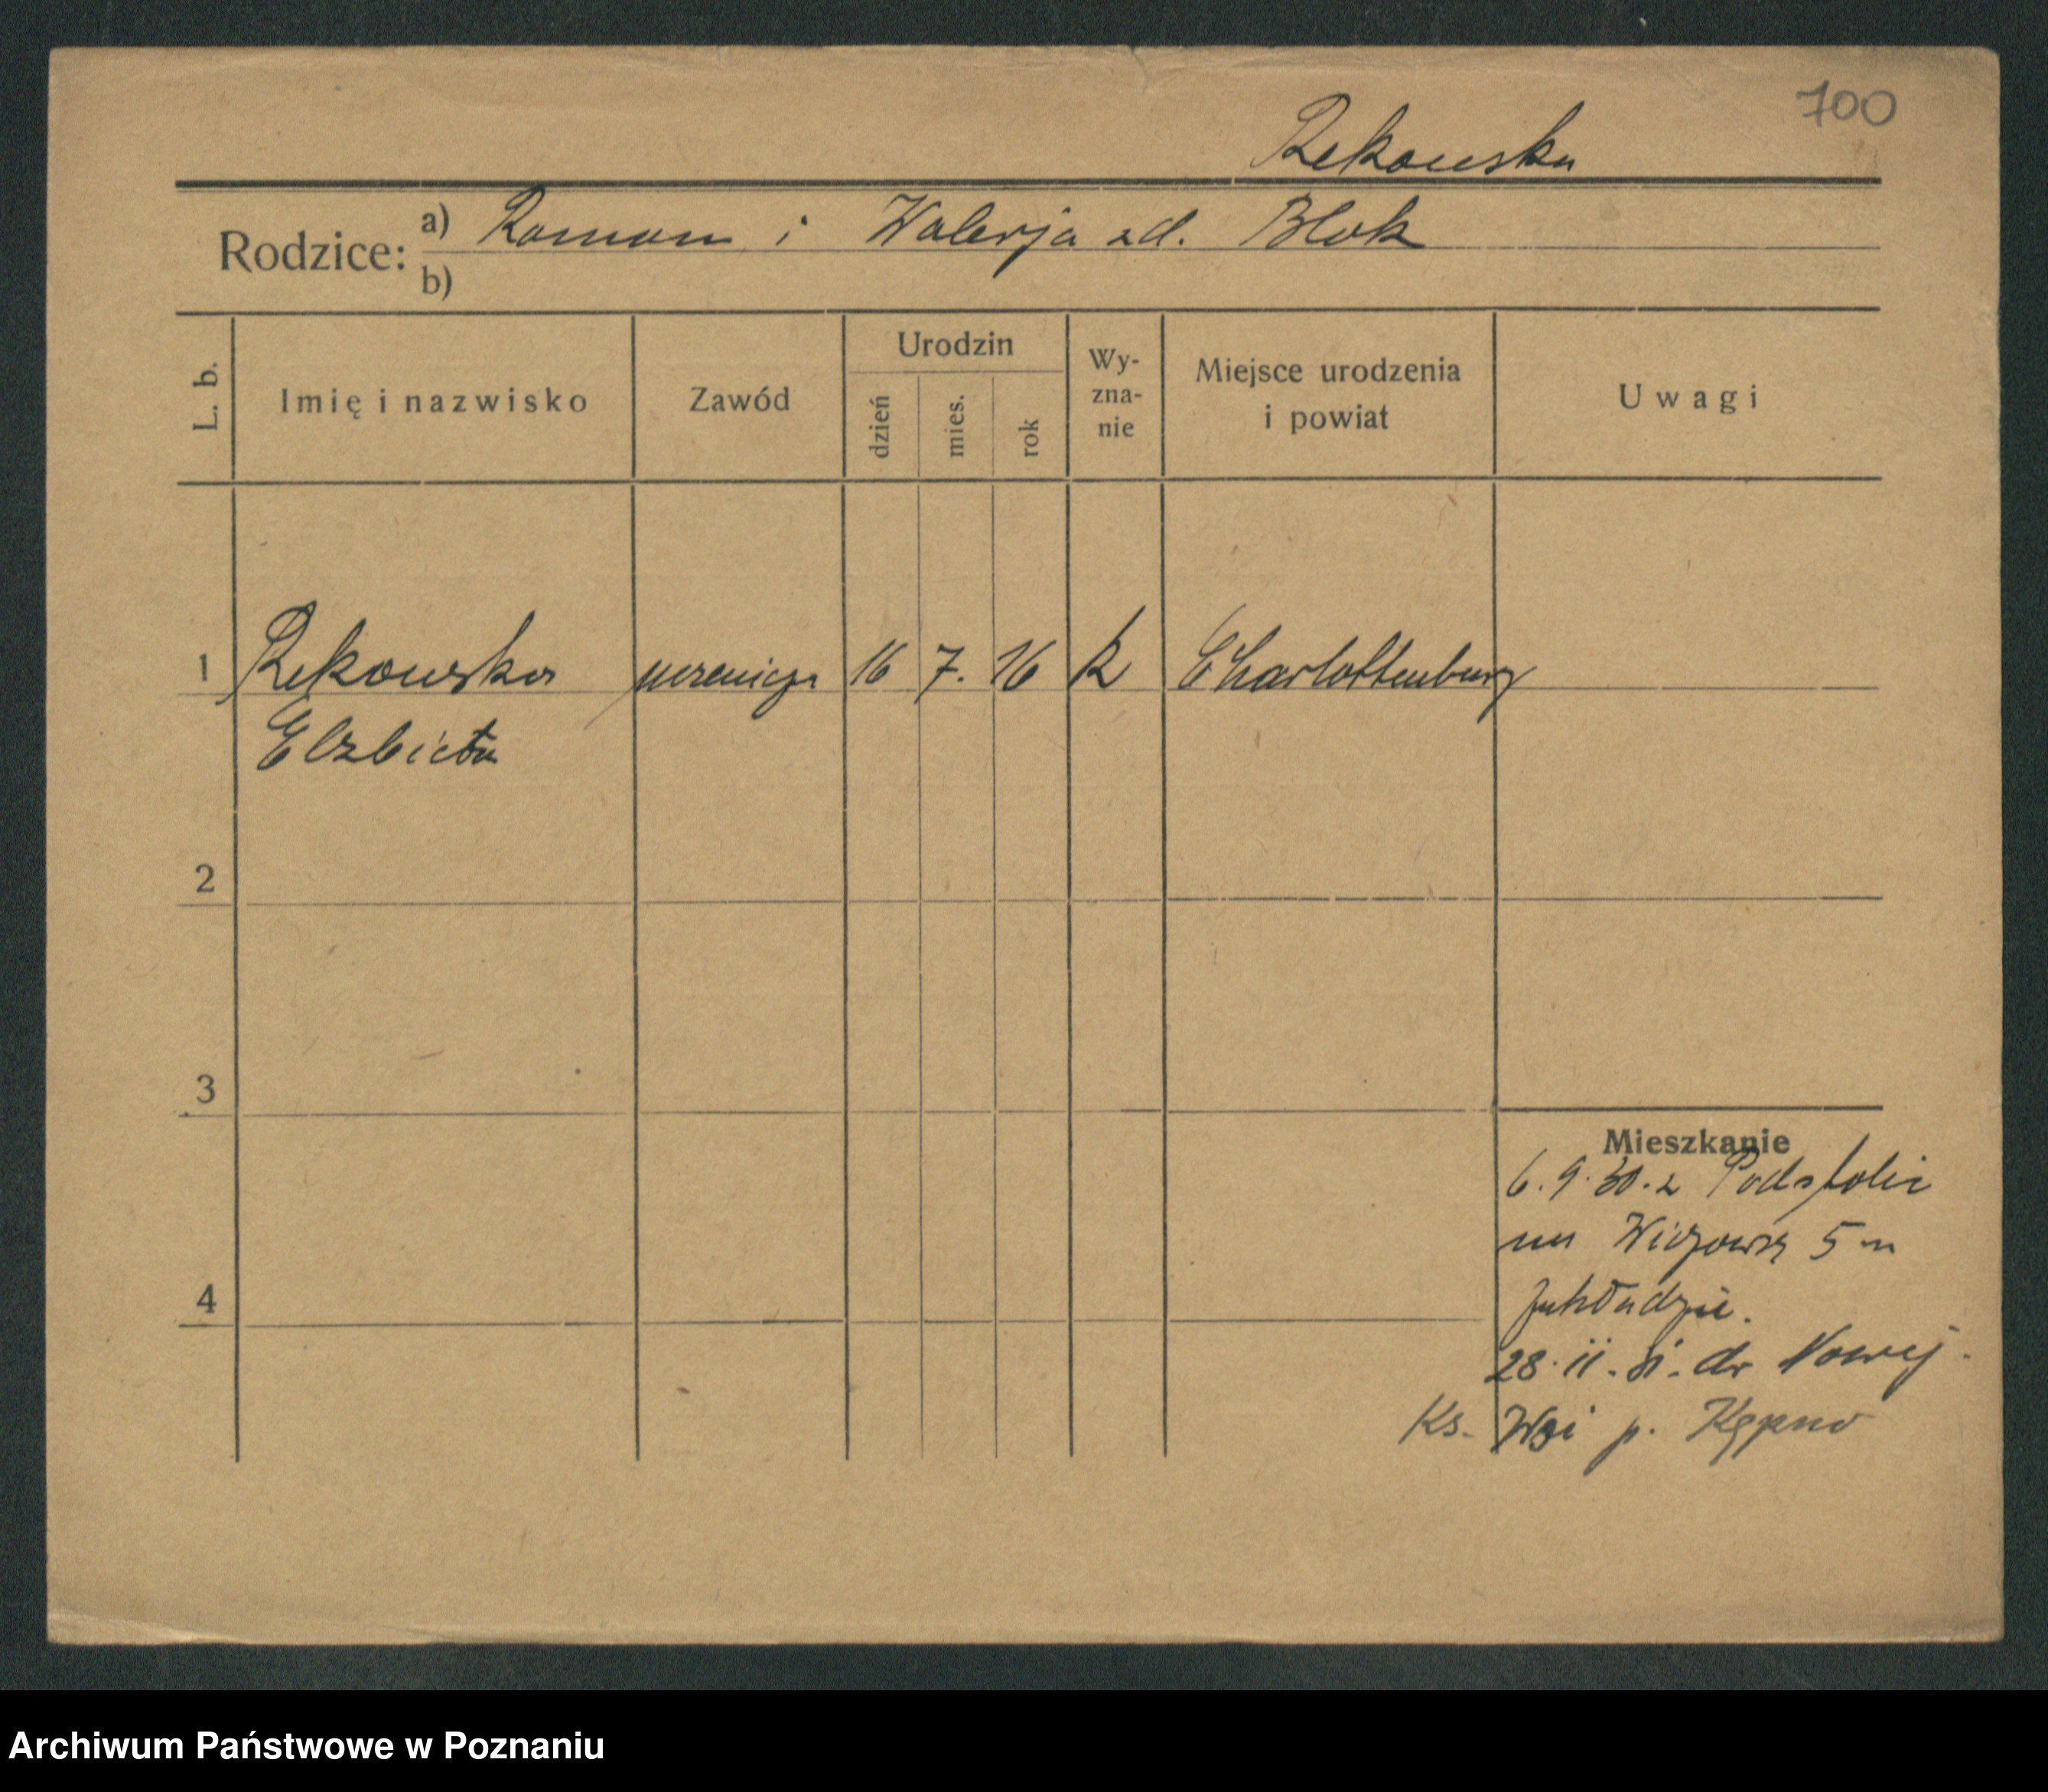 700
Rekowska
Rodzice: a) Roman i Walerja zd. Blok
b)
L. b.
Imię i nazwisko
Zawód
Urodzin
dzień
mies.
rok
Wy-
zna-
nie
Miejsce urodzenia
i powiat
Uwagi
1 Rekowska uczenica 16 7. 16 k Charlottenburg
Elzbieta
2
3
4
Mieszkanie
6. 9. 30. z
na 5 w
Zakładzie.
28. 11. 31. do Nowej
Ks. Wsi p. Kępno
Archiwum Państwowe w Poznaniu